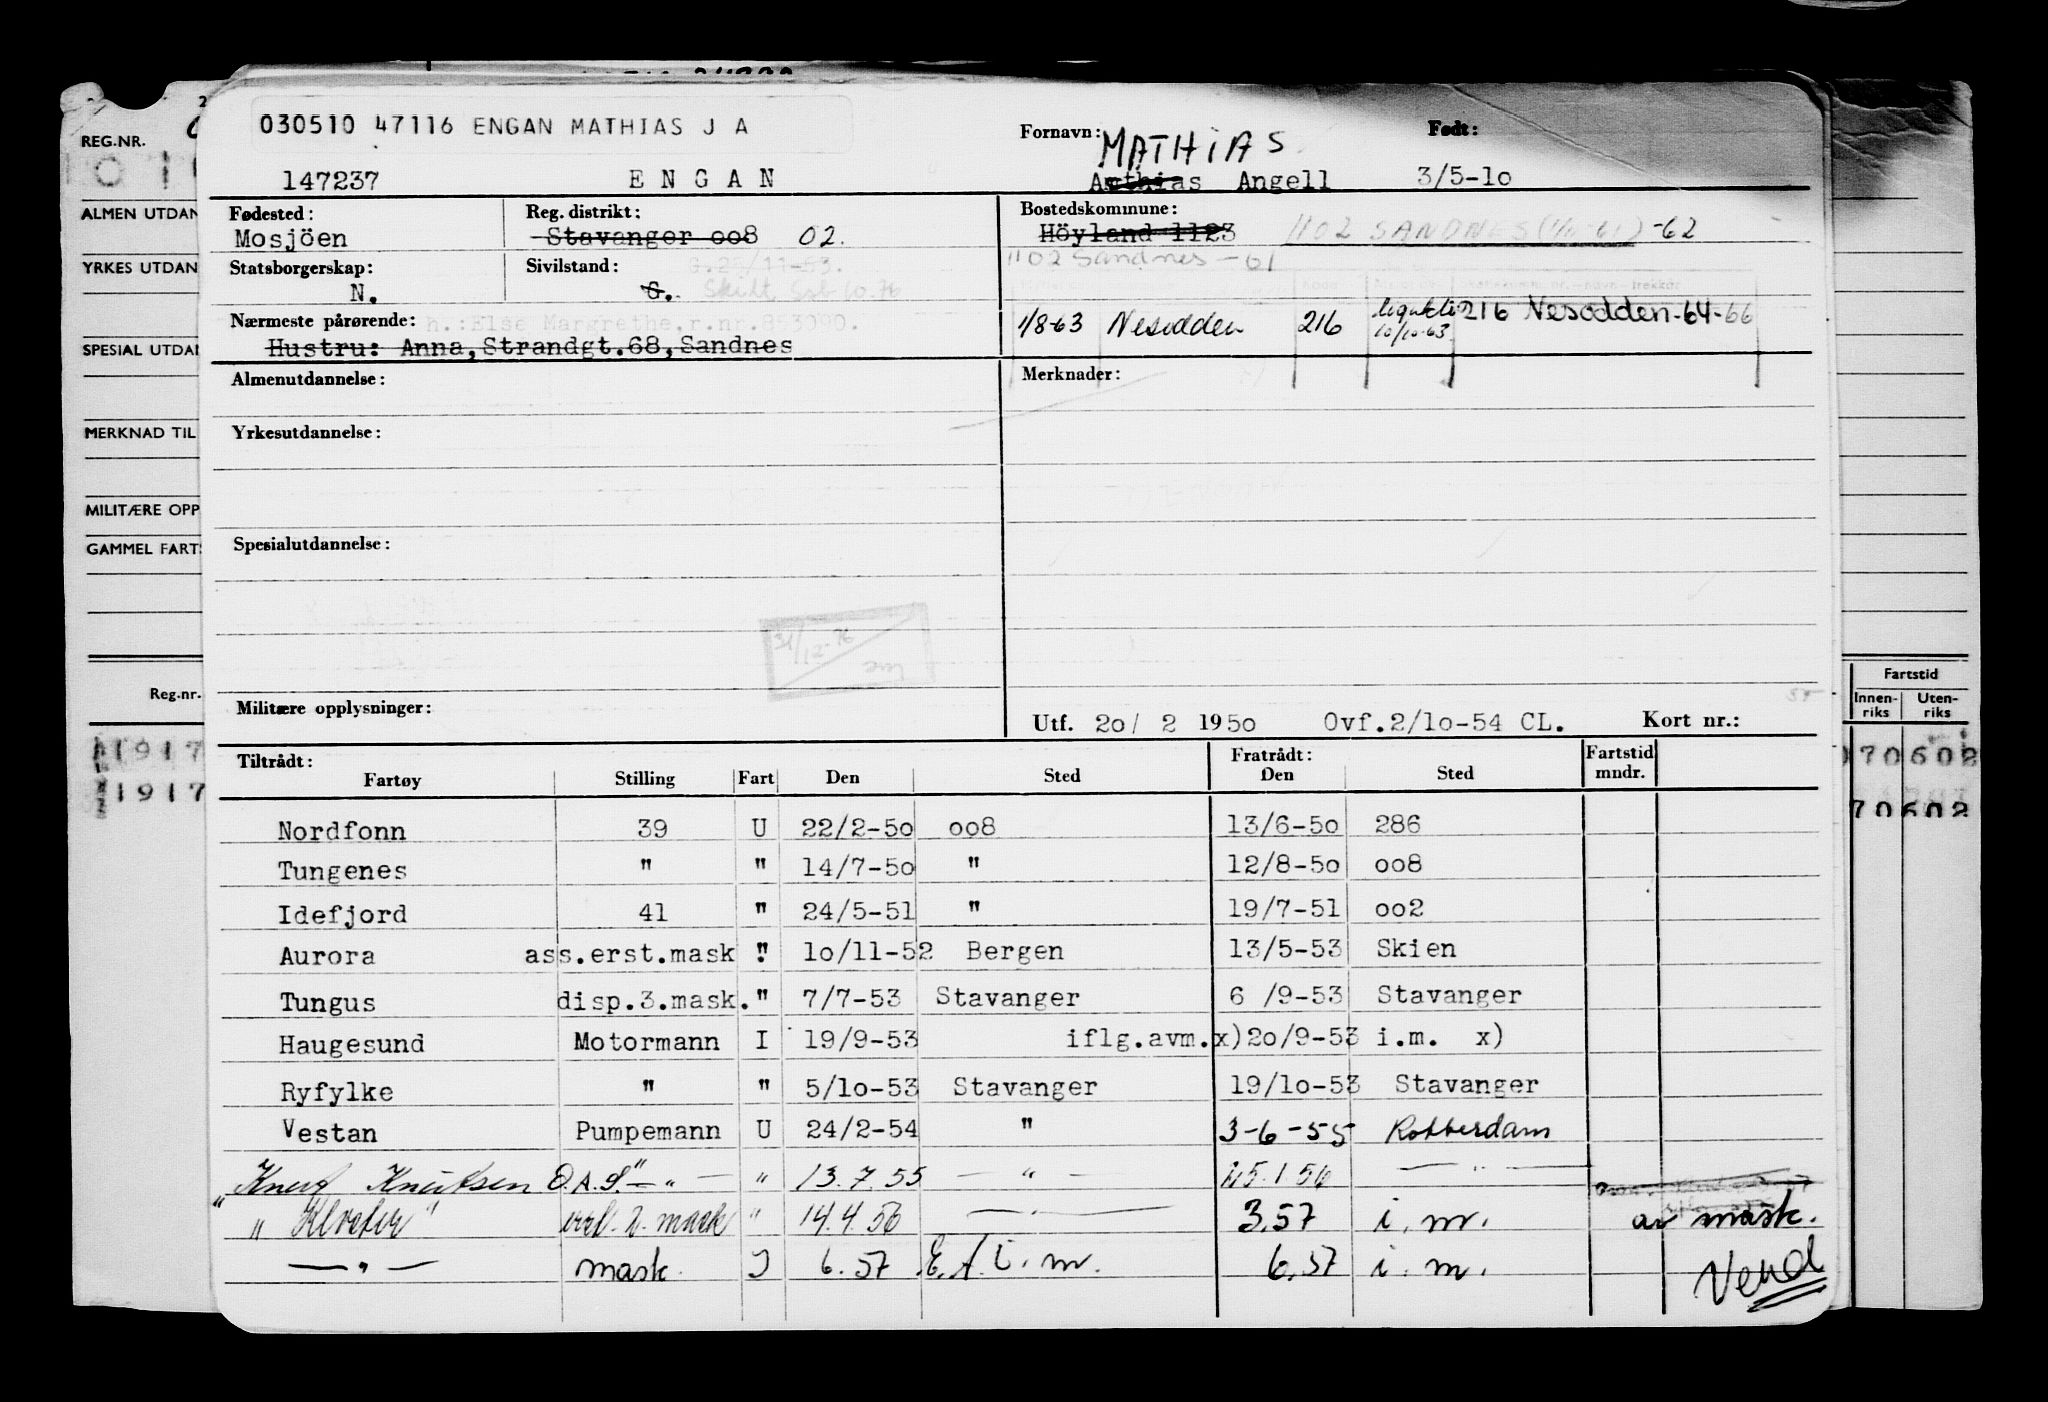 REG.NR.
ALMEN UTDAN
YRKES UTDAN
SPESIAL UTDAN
MERKNAD TIL
MILITÆRE OPP
GAMMEL FARTS
Reg.nr.
1917
1917
030510 47116 ENGAN MATHIAS J A
Fornavn: MATHIAS Født:
147237 ENGAN Anthias Angell 3/5-1o
Fødested: Reg. distrikt: Bostedskommune:
Mosjöen Stavanger oo8 02. Höyland 1123 1102 SANDNES (1/6-61) -62
Statsborgerskap: Sivilstand: G.28/11-53. 1102 Sandnes - 61
N. G. Skilt Sab 10.76
Nærmeste pårørende: h.:Else Margrethe,r.nr.853090. 1/8-63 Nesodden 216 10/10-63 216 Nesodden-64-66
Hustru: Anna,Strandgt.68,Sandnes
Almenutdannelse: Merknader:
Yrkesutdannelse:
Spesialutdannelse:
31/12-76
Militære opplysninger: Utf. 2o/ 2 195o Ovf.2/1o-54 CL. Kort nr.:
Tiltrådt: Fratrådt: Fartstid
Fartøy Stilling Fart Den Sted Den Sted mndr.
Nordfonn 39 U 22/2-5o oo8 13/6-5o 286
Tungenes " " 14/7-5o " 12/8-5o oo8
Idefjord 41 " 24/5-51 " 19/7-51 oo2
Aurora ass.erst.mask. " 1o/11-52 Bergen 13/5-53 Skien
Tungus disp.3.mask. " 7/7-53 Stavanger 6 /9-53 Stavanger
Haugesund Motormann I 19/9-53 iflg.avm.x) 2o/9-53 i.m. x)
Ryfylke " " 5/1o-53 Stavanger 19/1o-53 Stavanger
Vestan Pumpemann U 24/2-54 " 3-6-55 Rotterdam
"Knut Knutsen O.A.S." - " - " 13.7.55 - " - 15.1.56 - " -
" Kloster" vik. 2. mask " 14.4.56 - " - 3.57 i.m. av mask.
- " - mask. I 6.57 E.f. i.m. 6.57 i.m.
Vend
Fartstid
Innen-riks Uten-riks
070602
70602